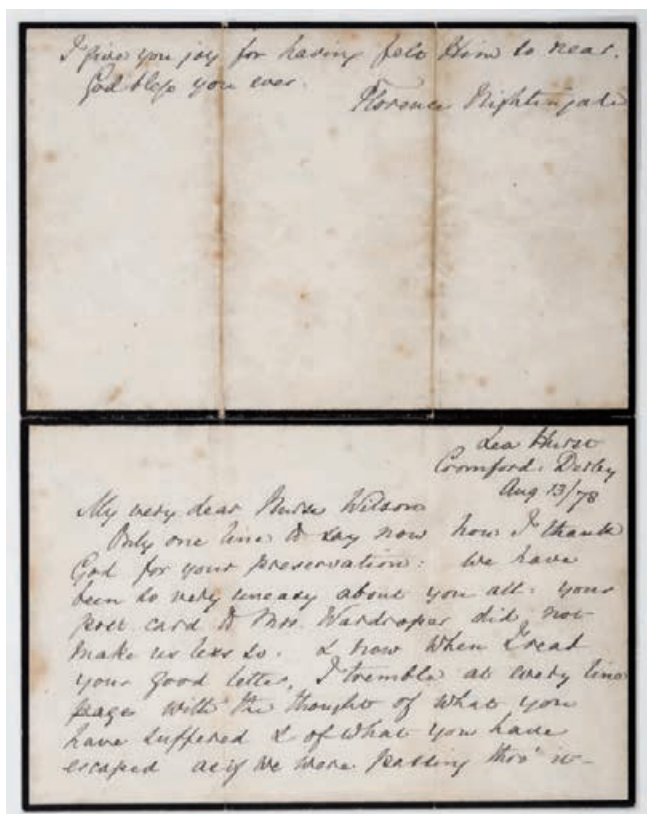 I give you joy for having felt Him so near.
God bless you ever.
Florence Nightingale
Lea Hurst
Cromford: Derby
Aug 13/78
My very dear Nurse Wilson
Only one line to say now how I thank
God for your preservation: We have
been so very uneasy about you all: your
post card to Mrs. Wardroper did not
make us less so. & now when I read
your good letter, I tremble at every line
page with the thought of what you
have suffered & of what you have
escaped as if we were passing thro' it